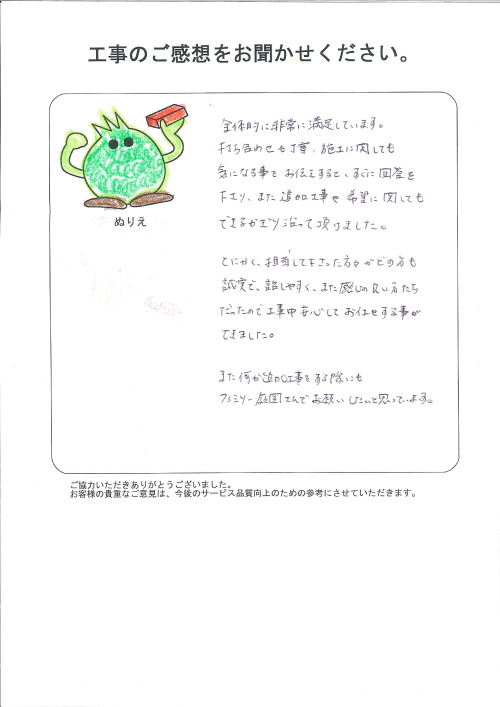 工事のご感想をお聞かせください。
ぬりえ
全体的に非常に満足しています。
打ち合わせも丁寧、施工に関しても
気になる事をお伝えすると、すぐに回答を
下さり、また追加工事や希望に関しても
できるかぎり沿って頂けました。
とにかく、担当して下さった方々がどの方も
誠実で、話しやすく、また感じの良い方たち
だったので工事中安心してお任せする事が
できました。
また何か追加工事をする際にも
ファミリー庭園さんでお願いしたいと思っています。
ご協力いただきありがとうございました。
お客様の貴重なご意見は、今後のサービス品質向上のための参考にさせていただきます。